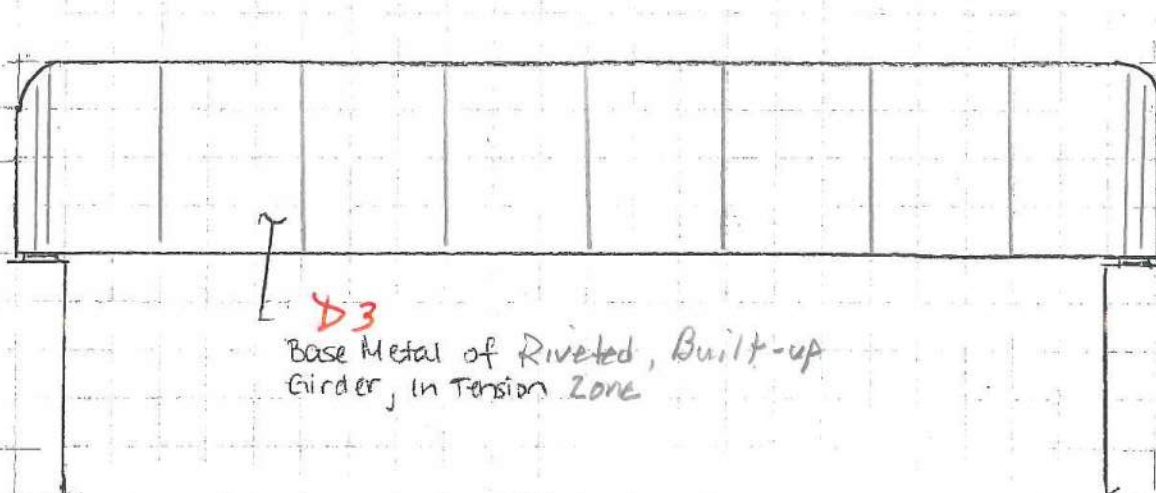 D3
Base Metal of Riveted, Built-up
Girder, in Tension Zone